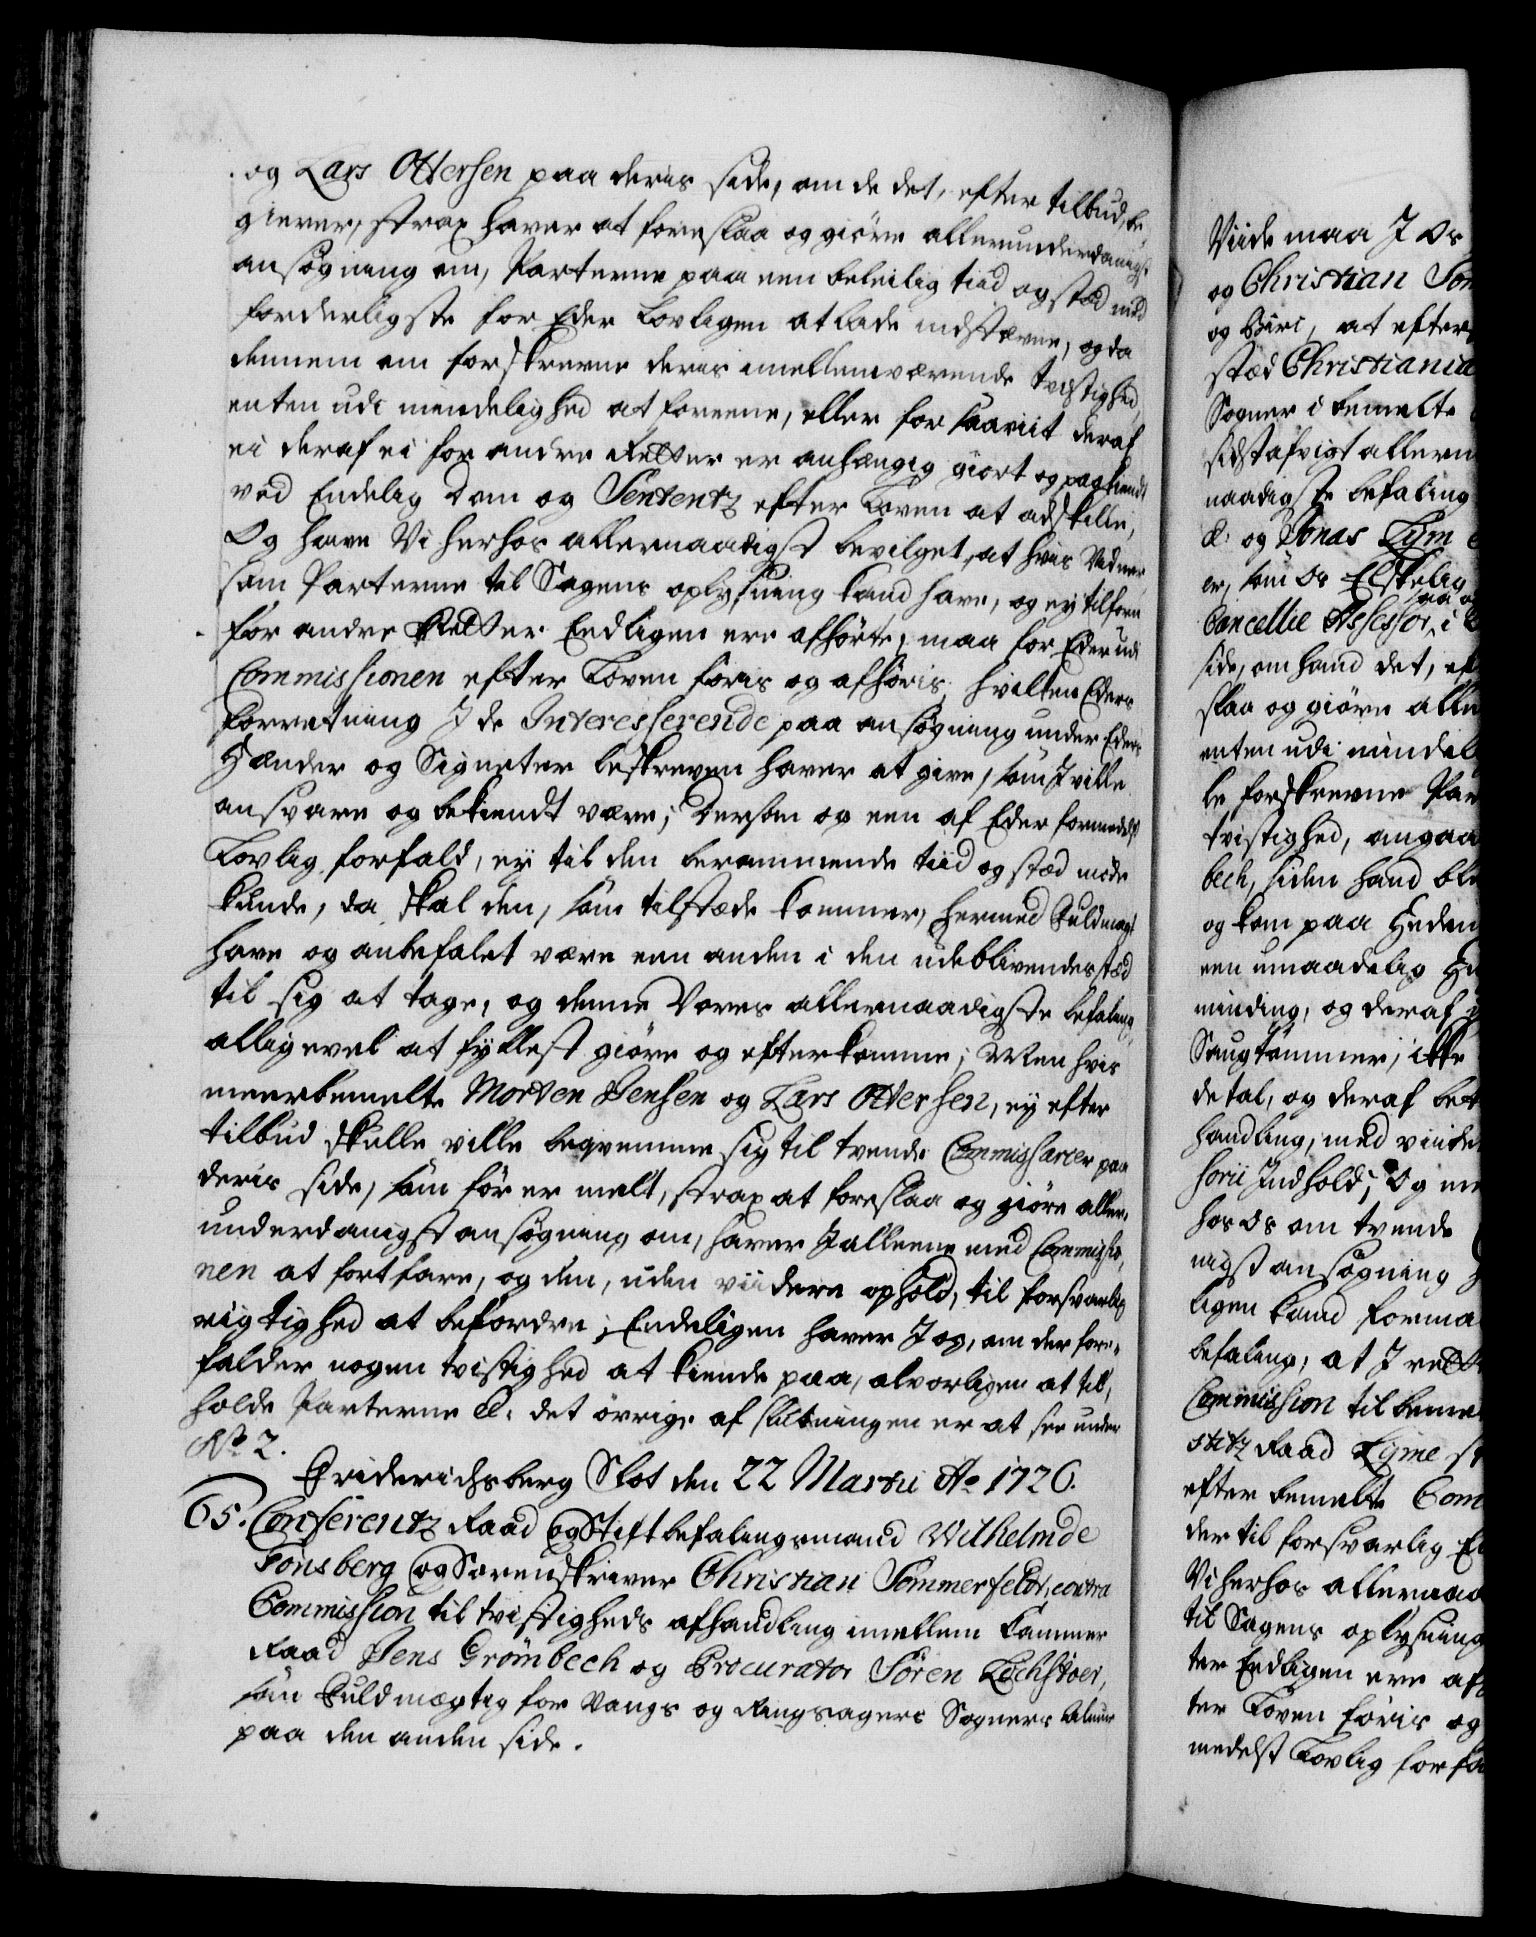 og Lars Ottersen paa deris side, om de det, efter tilbud, be
gierer, strax haver at foreslaa og giöre allerunderdanigst
ansögning om, Parterne paa een beleilig tiid og stæd med
forderligste for Eder Lovligen at lade indstævne, og da
dennem om forskrevne deris imellemværende tvistighed,
enten udi mindelighed at foreene, eller for saaviit deraf
ei deraf ei for andre Retter er anhængig giort og paakiendt
ved Endelig Dom og Sententz efter Loven at adskille,
Og have Vi herhos allernaadigst bevilget, at hvis Vidner
som Parterne til Sagens oplysning kand have, og ey tilforn
for andre Retter Endligen ere afhörte, maa for Eder udi
Commissionen efter Loven föris og afhöris, hvilken Eders
Forretning I de Interesserende paa ansögning under Eders
Hænder og Signeter beskreven haver at give, som I ville
ansvare og bekiendt være; Dersom og een af Eder formedelst
Lovlig forfald, ey til den berammende tiid og stæd möde
kunde, da skal den, som tilstæde kommer, hermed Fuldmagt
have og anbefalet være een anden i den udeblivendes stæd
til sig at tage, og denne Vores allernaadigste befaling,
alligevel at fyllest giöre og efterkomme; Men hvis
meerbemelte Morten Jensen og Lars Ottersen, ey efter
tilbud skulle ville beqvemme sig til tvende Commissarier paa
deris side, som för er melt, strax at foreslaa og giöre aller-
underdanigst ansögning om, haver I alleene med Commissio-
nen at fortfare, og den, uden viidere ophold, til forsvarlig
rigtighed at befordre; Endeligen haver I og, om der fore-
falder nogen tvistighed at kiende paa, alvorligen at til-
holde Parterne &: det övrige af slutningen er at see under
No 2.
Friderichsberg Slot den 22 Martii Ao 1726.
65. Conferentz Raad og Stiftbefalingsmand Wilhelm de
Tönsberg og Sorenskriver Christian Sommerfeldt, contra
Commission til tvistigheds afhandling imellem Kammer
Raad Jens Grömbech og Procurator Sören Lachstoer,
som Fuldmægtig for Vangs og Ringsagers Sogners Almue
paa den anden side.
Viide maa I Os
og Christian Som
og Biri, at efter
stæd Christiania
Sogner i bemelte
sidst afvigt allern
naadigste befaling
&: og Jonas Lÿm
er, som Os Elskelig
Cancellie Assessor, i
side, om hand det, ef
slaa og giöre alle
enten udi mindel
le forskrevne Par
tvistighed, angaa
bech, siden hand ble
og kom paa Heden
een umaadelig
minding, og deraf
Saugtömmer, ikke
detal, og deraf bet
handling, med viide
sorii Indhold; Og
hos Os om tvende
nigst ansögning
ligen kand forma
befaling, at I rett
Commission til beme
stitz Raad Lÿme
efter bemelte Com
der til forsvarlig
Vi herhos allernaa
til Sagens oplysning
ter Endligen ere af
ter Loven föris og
medelst Lovlig forfa